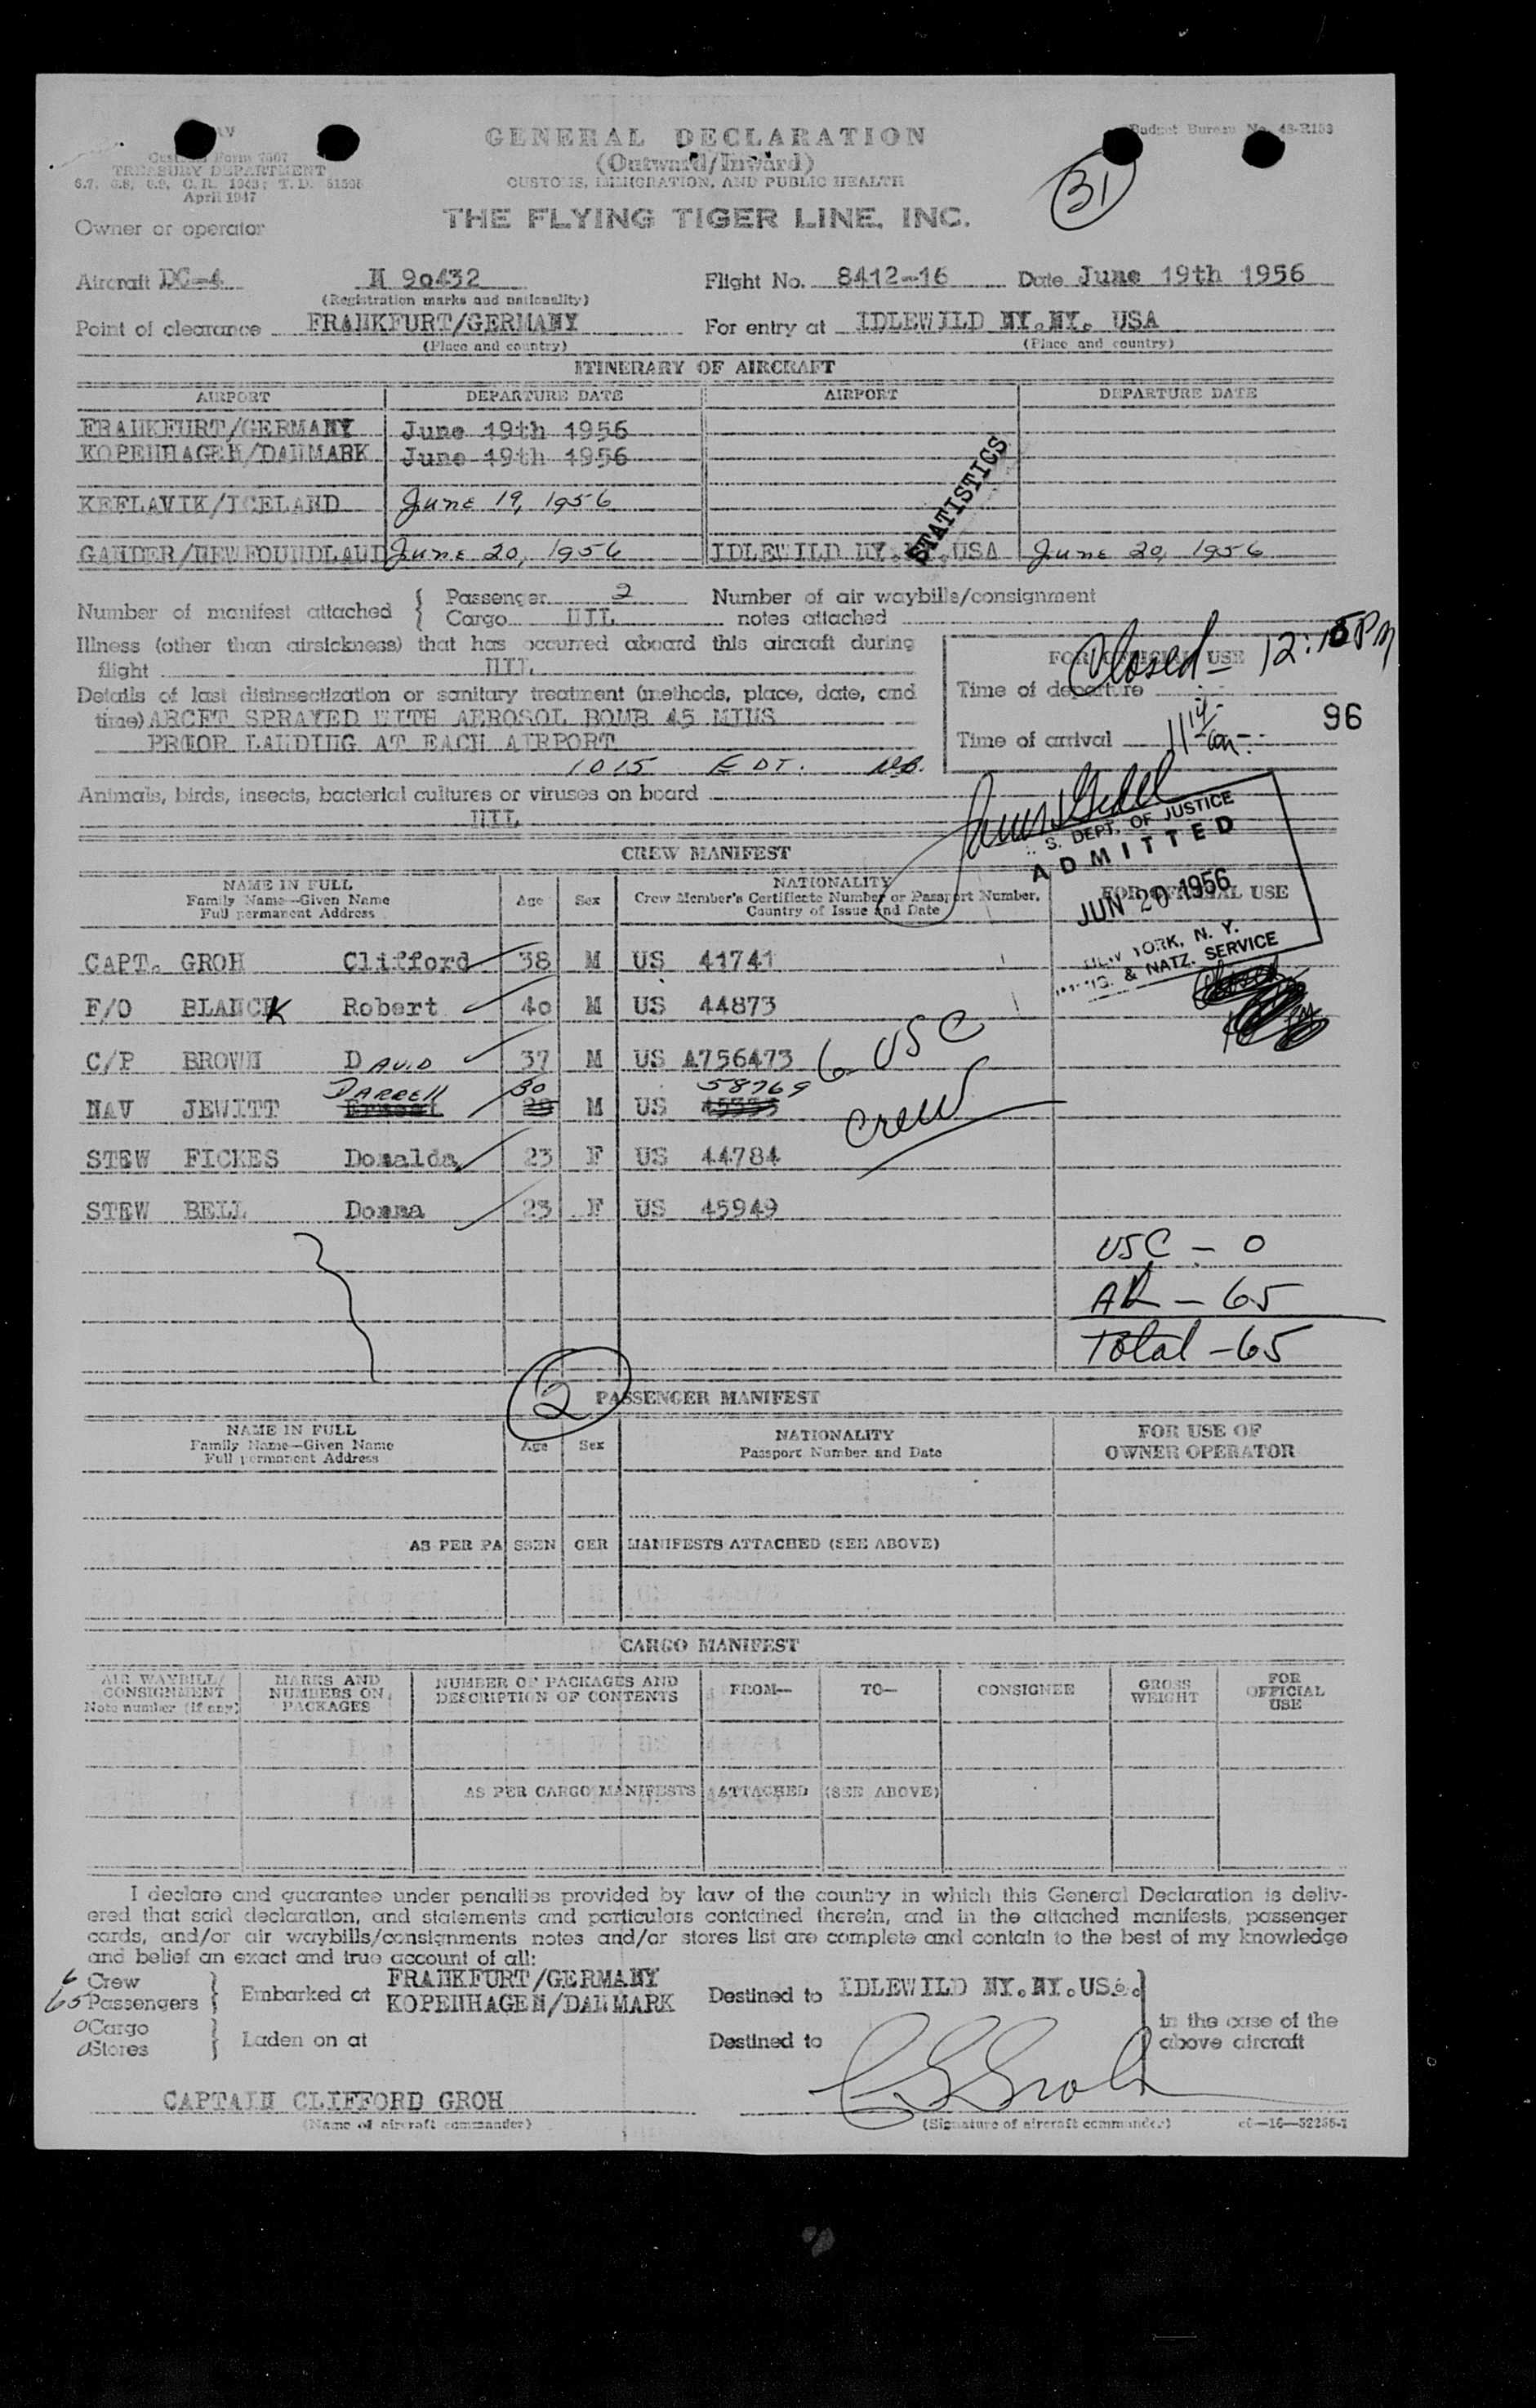 GENERAL DECLARATION
(Outward/Inward)
CUSTOMS, IMMIGRATION, AND PUBLIC HEALTH
Budget Bureau No. 48-R153
Customs Form 7507
TREASURY DEPARTMENT
April 1947
31
THE FLYING TIGER LINE, INC.
Owner or operator
Aircraft DC-4 N 90432 Flight No. 8412-16 Date June 19th 1956
(Registration marks and nationality)
Point of clearance FRANKFURT/GERMANY For entry at IDLEWILD NY.NY. USA
(Place and country) (Place and country)
ITINERARY OF AIRCRAFT
AIRPORT DEPARTURE DATE AIRPORT DEPARTURE DATE
FRANKFURT/GERMANY June 19th 1956
KOPENHAGEN/DANMARK June 19th 1956
KEFLAVIK/ICELAND June 19, 1956
STATISTICS
GANDER/NEWFOUNDLAND June 20, 1956 IDLEWILD NY. .USA June 20, 1956
Number of manifest attached { Passenger 2 Number of air waybills/consignment
Cargo NIL notes attached
Illness (other than airsickness) that has occurred aboard this aircraft during
flight NIL
FOR OFFICIAL USE
Closed - 12:15PM
Details of last disinsectization or sanitary treatment (methods, place, date, and
Time of departure
time) ARCFT SPRAYED WITH AEROSOL BOMB 45 MINS
PRIOR LANDING AT EACH AIRPORT
Time of arrival
96
1015 EDT.
Animals, birds, insects, bacterial cultures or viruses on board
NIL
S. DEPT. OF JUSTICE
ADMITTED
JUN 20 1956
NEW YORK, N. Y.
& NATZ. SERVICE
CREW MANIFEST
NAME IN FULL
Family Name—Given Name
Full permanent Address
Age Sex
NATIONALITY
Crew Member's Certificate Number or Passport Number,
Country of Issue and Date
FOR OFFICIAL USE
CAPT. GROH Clifford 38 M US 41741
F/O BLANCK Robert 40 M US 44873
C/P BROWN DAVID 37 M US A756473
6 USC
Crew
DARRELL 30 58769
NAV JEWITT M US
STEW FICKES Donalda 23 F US 44784
STEW BELL Donna 23 F US 45949
USC - 0
AR - 65
Total - 65
2
PASSENGER MANIFEST
NAME IN FULL
Family Name—Given Name
Full permanent Address
Age Sex
NATIONALITY
Passport Number and Date
FOR USE OF
OWNER OPERATOR
AS PER PASSENGER MANIFESTS ATTACHED (SEE ABOVE)
CARGO MANIFEST
AIR WAYBILL/
CONSIGNMENT
Note number (if any)
MARKS AND
NUMBERS ON
PACKAGES
NUMBER OF PACKAGES AND
DESCRIPTION OF CONTENTS
FROM— TO— CONSIGNEE
GROSS
WEIGHT
FOR
OFFICIAL
USE
AS PER CARGO MANIFESTS ATTACHED (SEE ABOVE)
I declare and guarantee under penalties provided by law of the country in which this General Declaration is deliv-
ered that said declaration, and statements and particulars contained therein, and in the attached manifests, passenger
cards, and/or air waybills/consignments notes and/or stores list are complete and contain to the best of my knowledge
and belief an exact and true account of all:
6 Crew
65 Passengers
Embarked at FRANKFURT/GERMANY
KOPENHAGEN/DANMARK
Destined to IDLEWILD NY.NY.USA.
0 Cargo
0 Stores
Laden on at
Destined to
in the case of the
above aircraft
CAPTAIN CLIFFORD GROH
(Name of aircraft commander)
(Signature of aircraft commander)